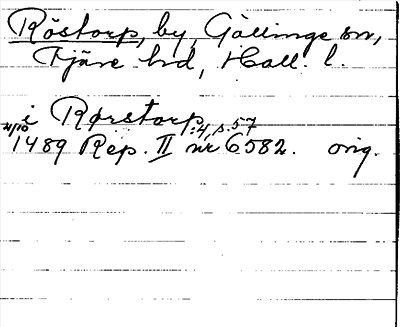 Röstorp, by, Gällinge sn,
Fjäre hd, Hall. l.
i Rørstorp
:4, s. 57
4/10 1489 Rep. II nr 6582. orig.